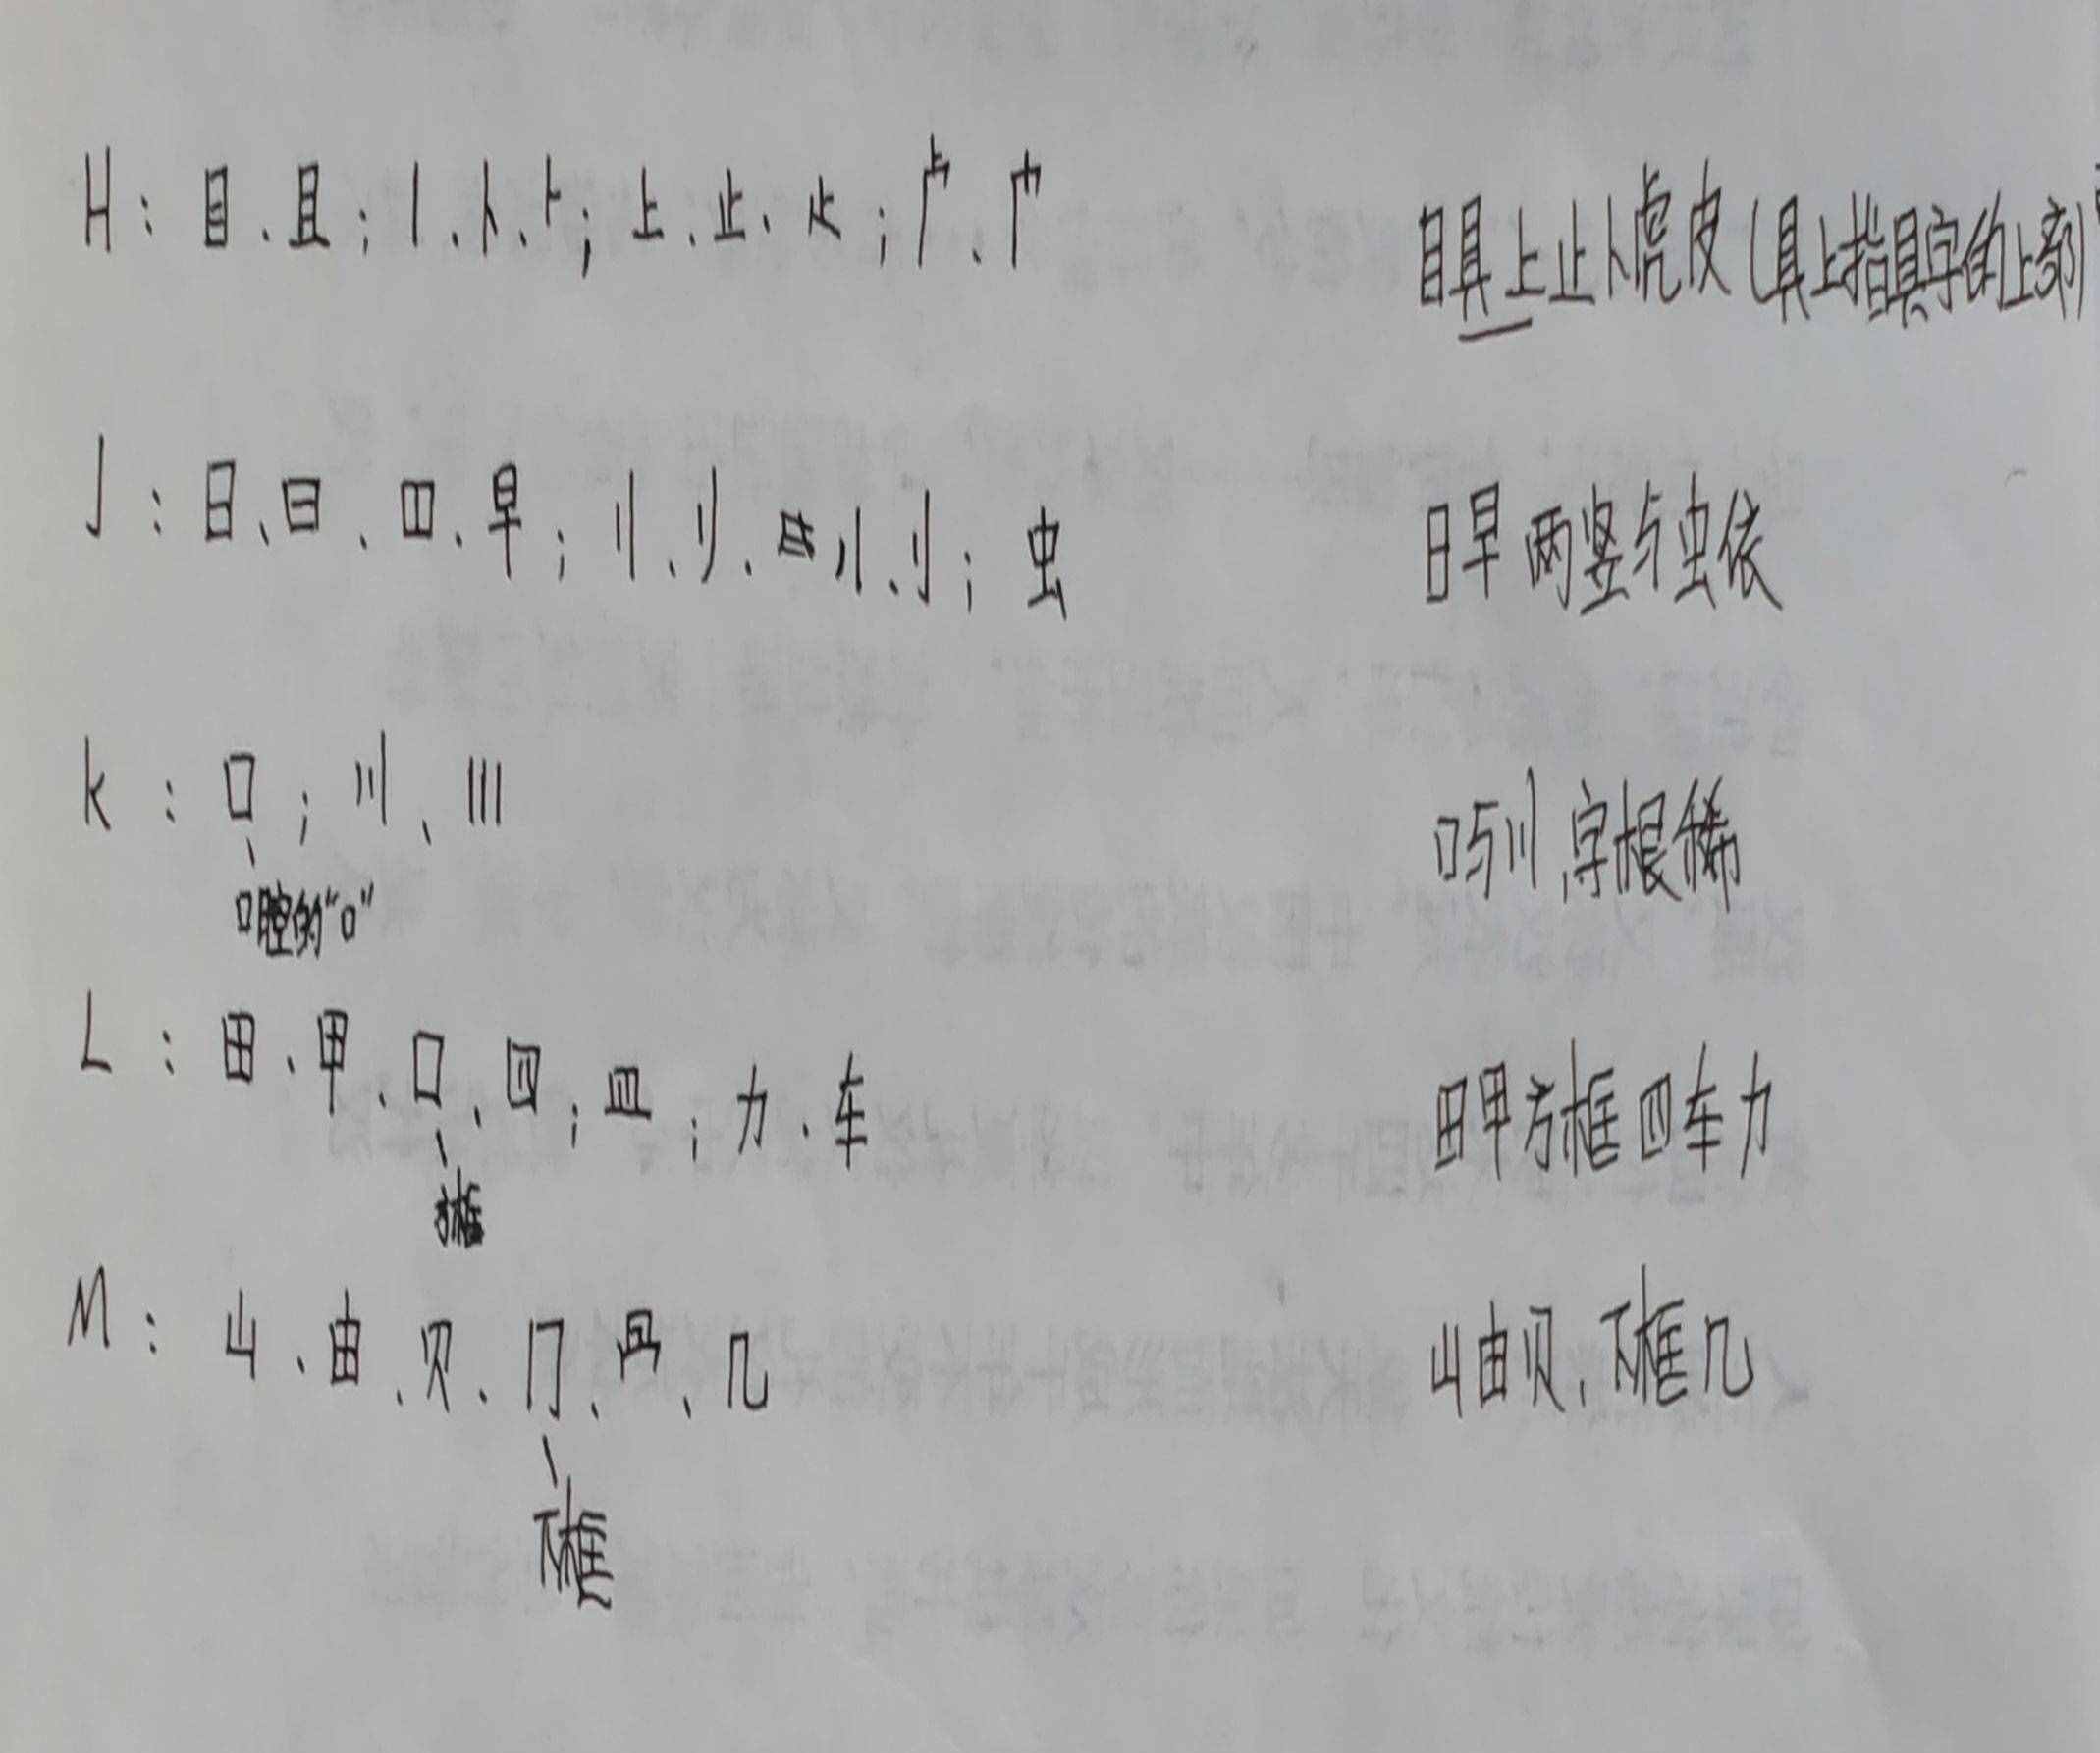 H：目、且；丨、卜、⺊；上、止、龰；虍、 目具上止卜虎皮（具上指具字的上部）
J：日、曰、、早；刂、、、；虫 日早两竖与虫依
K：口；川、||| 口与川字根稀
口腔的“口”
L：田、甲、囗、四；皿；力、车 田甲方框四车力
方框
M：山、由、贝、冂、、几 山由贝，下框几
下框